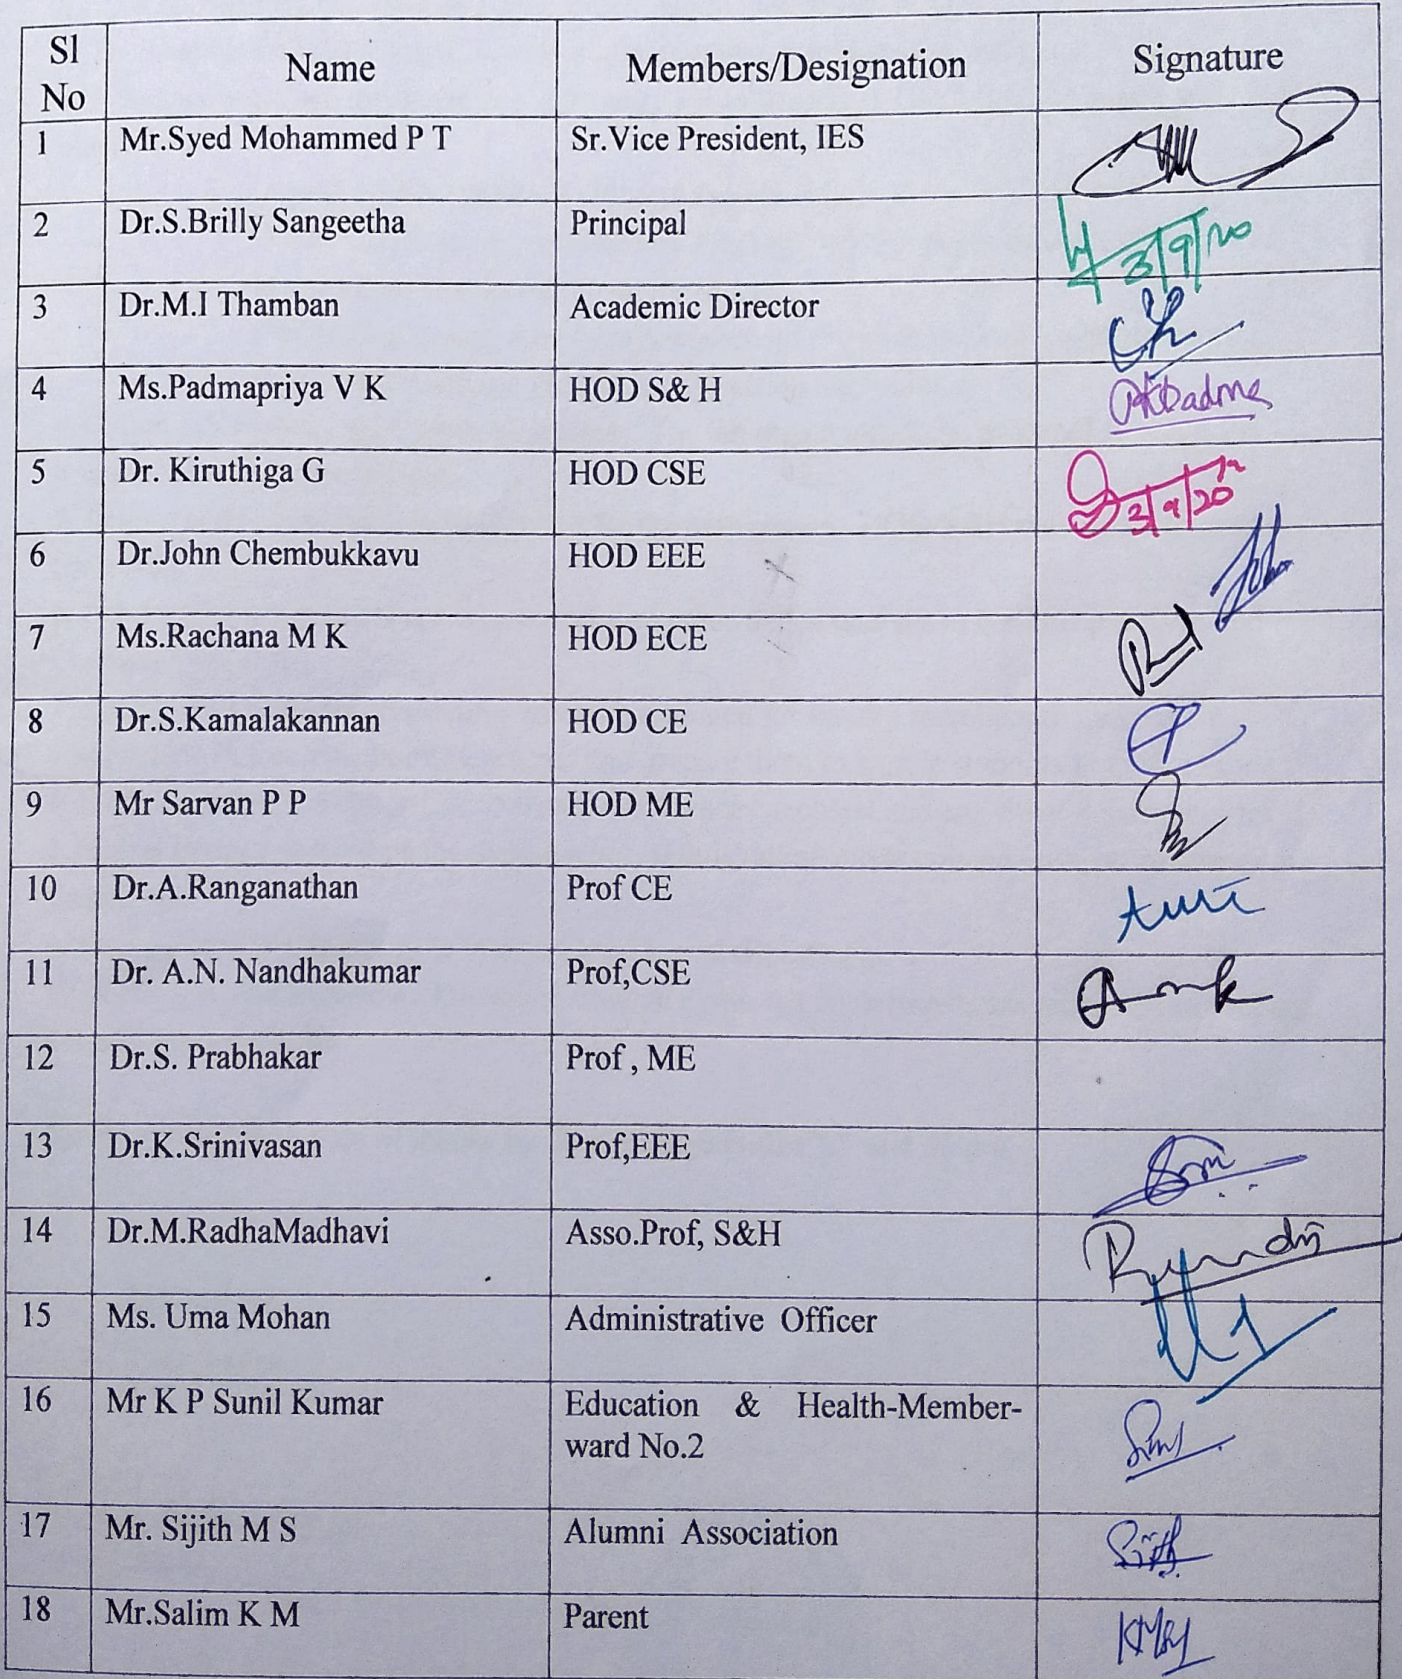 Sl No Name Members/Designation Signature
1 Mr.Syed Mohammed P T Sr.Vice President, IES
2 Dr.S.Brilly Sangeetha Principal 3/9/20
3 Dr.M.I Thamban Academic Director
4 Ms.Padmapriya V K HOD S& H
5 Dr. Kiruthiga G HOD CSE 3/9/20
6 Dr.John Chembukkavu HOD EEE John
7 Ms.Rachana M K HOD ECE
8 Dr.S.Kamalakannan HOD CE
9 Mr Sarvan P P HOD ME
10 Dr.A.Ranganathan Prof CE
11 Dr. A.N. Nandhakumar Prof,CSE
12 Dr.S. Prabhakar Prof , ME
13 Dr.K.Srinivasan Prof,EEE
14 Dr.M.RadhaMadhavi Asso.Prof, S&H
15 Ms. Uma Mohan Administrative Officer
16 Mr K P Sunil Kumar Education & Health-Member-
ward No.2
17 Mr. Sijith M S Alumni Association
18 Mr.Salim K M Parent